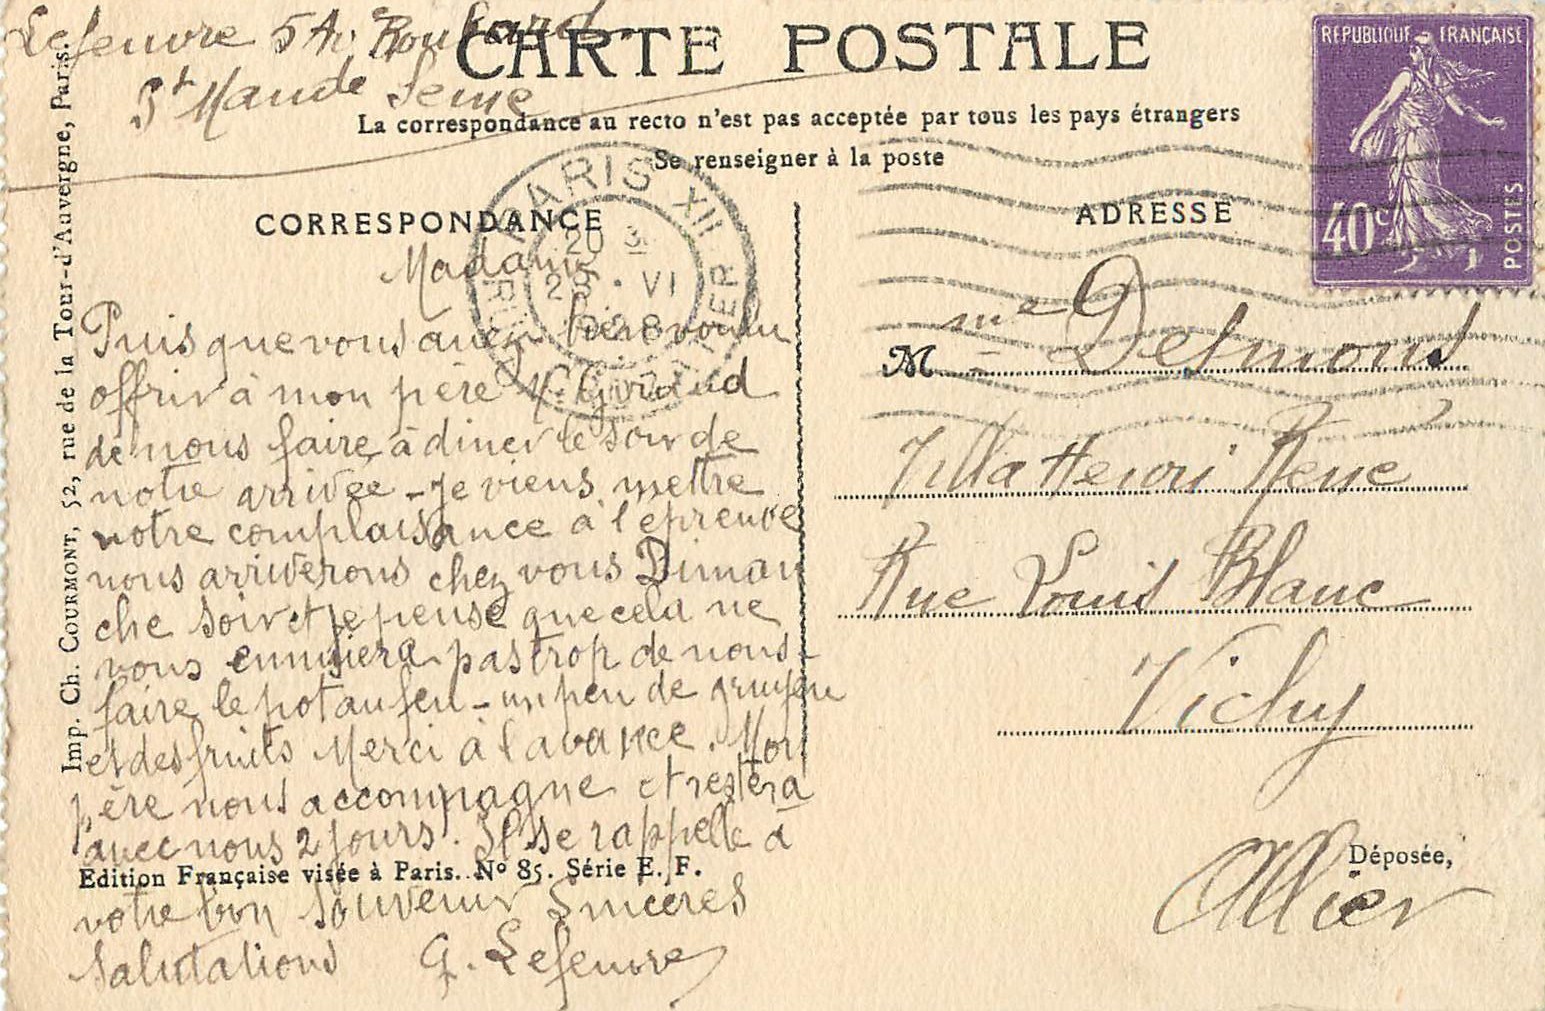 Lefeuvre 5 Av.
St Mandé Seine
CARTE POSTALE
La correspondance au recto n'est pas acceptée par tous les pays étrangers
Se renseigner à la poste
REPUBLIQUE FRANÇAISE
40c
POSTES
PARIS XII
20
VI
CORRESPONDANCE
Madame
Puisque vous avez bien voulu
offrir à mon père M. Giraud
de nous faire à diner le soir de
notre arrivée - je viens mettre
votre complaisance à l'épreuve
nous arriverons chez vous Diman
che soir et je pense que cela ne
vous ennuiera pas trop de nous
faire le pot au feu - un peu de gruyère
et des fruits Merci à l'avance. Mon
père nous accompagne et restera
avec nous 2 jours. Il se rappelle à
votre bon souvenir Sincères
Salutations G. Lefeuvre
ADRESSE
M me Delmond
Villa Henri René
Rue Louis Blanc
Vichy
Allier
Déposée,
Edition Française visée à Paris. No 85. Série E. F.
Imp. Ch. COURMONT, 52, rue de la Tour-d'Auvergne, Paris.